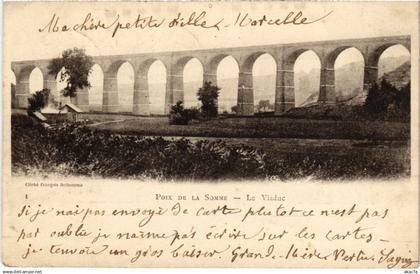 Ma chère petite fille Marcelle
Cliché François Bellemme
1
POIX DE LA SOMME — Le Viaduc
Si je n'ai pas envoyé de carte plutôt ce n'est pas
par oubli je n'aime pas écrire sur les cartes-
je t'envoie un gros baiser. Grand. Mère Vertu.